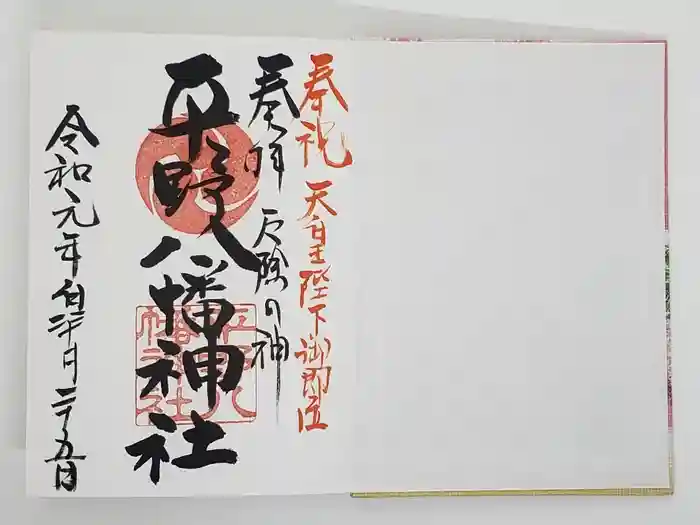 奉祝 天皇陛下御即位
奉拝 厄除の神
平野八幡神社
令和元年 月二十五日